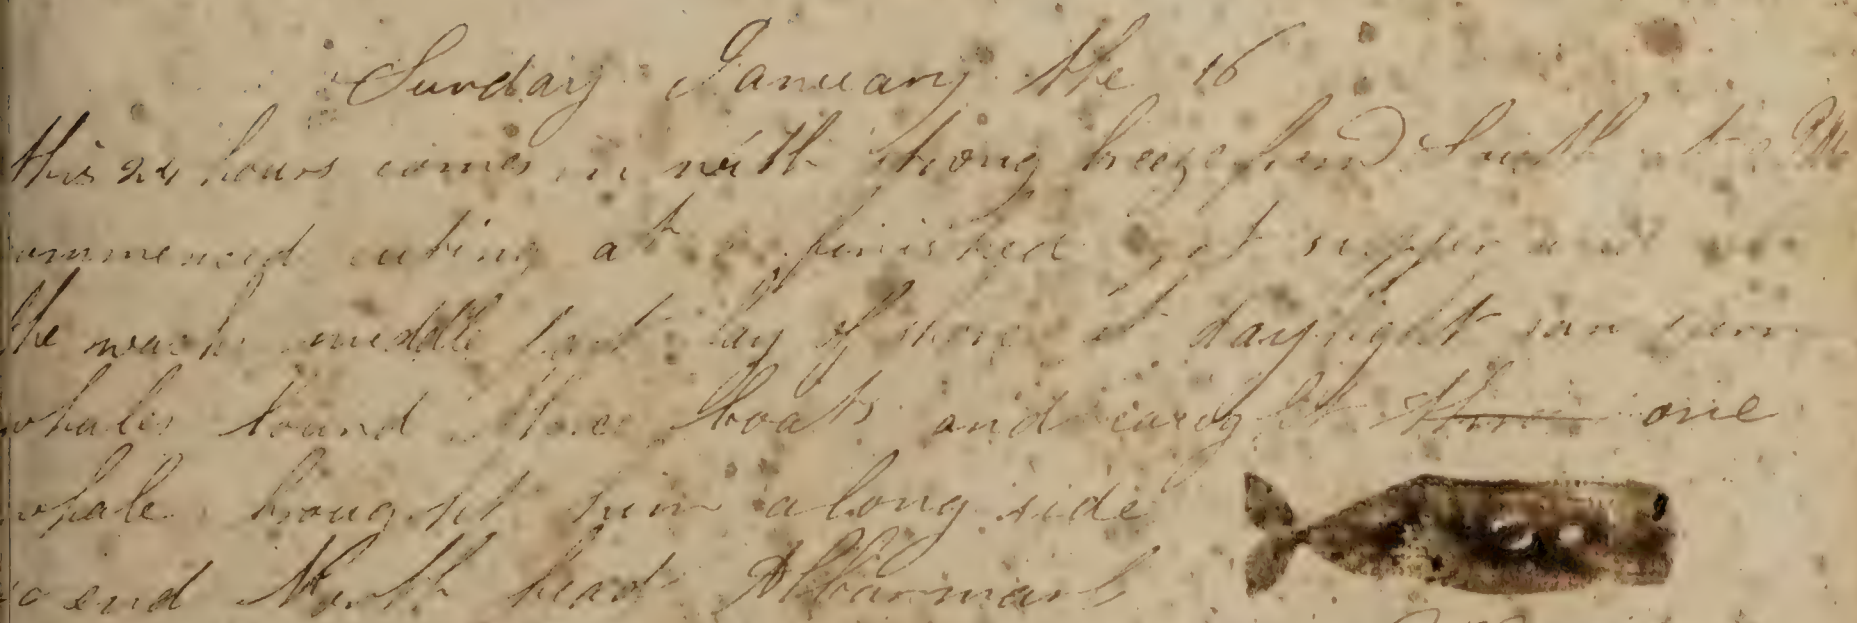 Sunday January the 16
this 24 hours comes in with strong breeze from South at PM
commenced cuting at finished got supper and
the watch middle part lay of more at daylight saw
whales lound three boats and caught one
whale brought him along side
so end North head Albarmarl